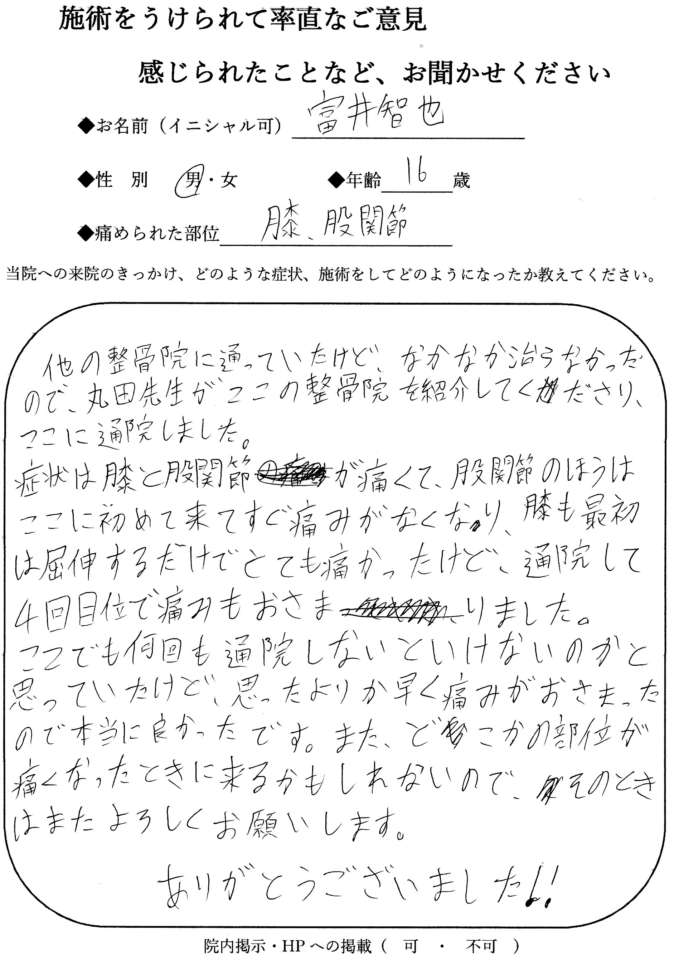 施術をうけられて率直なご意見
感じられたことなど、お聞かせください
◆お名前（イニシャル可） 富井智也
◆性 別 男・女 ◆年齢 16 歳
◆痛められた部位 膝、股関節
当院への来院のきっかけ、どのような症状、施術をしてどのようになったか教えてください。
他の整骨院に通っていたけど、なかなか治らなかった
ので、丸田先生がここの整骨院を紹介してくださり、
ここに通院しました。
症状は膝と股関節が痛くて、股関節のほうは
ここに初めて来てすぐ痛みがなくなり、膝も最初
は屈伸するだけでとても痛かったけど、通院して
4回目位で痛みもおさまりました。
ここでも何回も通院しないといけないのかと
思っていたけど、思ったよりか早く痛みがおさまった
ので本当に良かったです。また、どこかの部位が
痛くなったときに来るかもしれないので、そのとき
はまたよろしくお願いします。
ありがとうございました!!
院内掲示・HPへの掲載（ 可 ・ 不可 ）